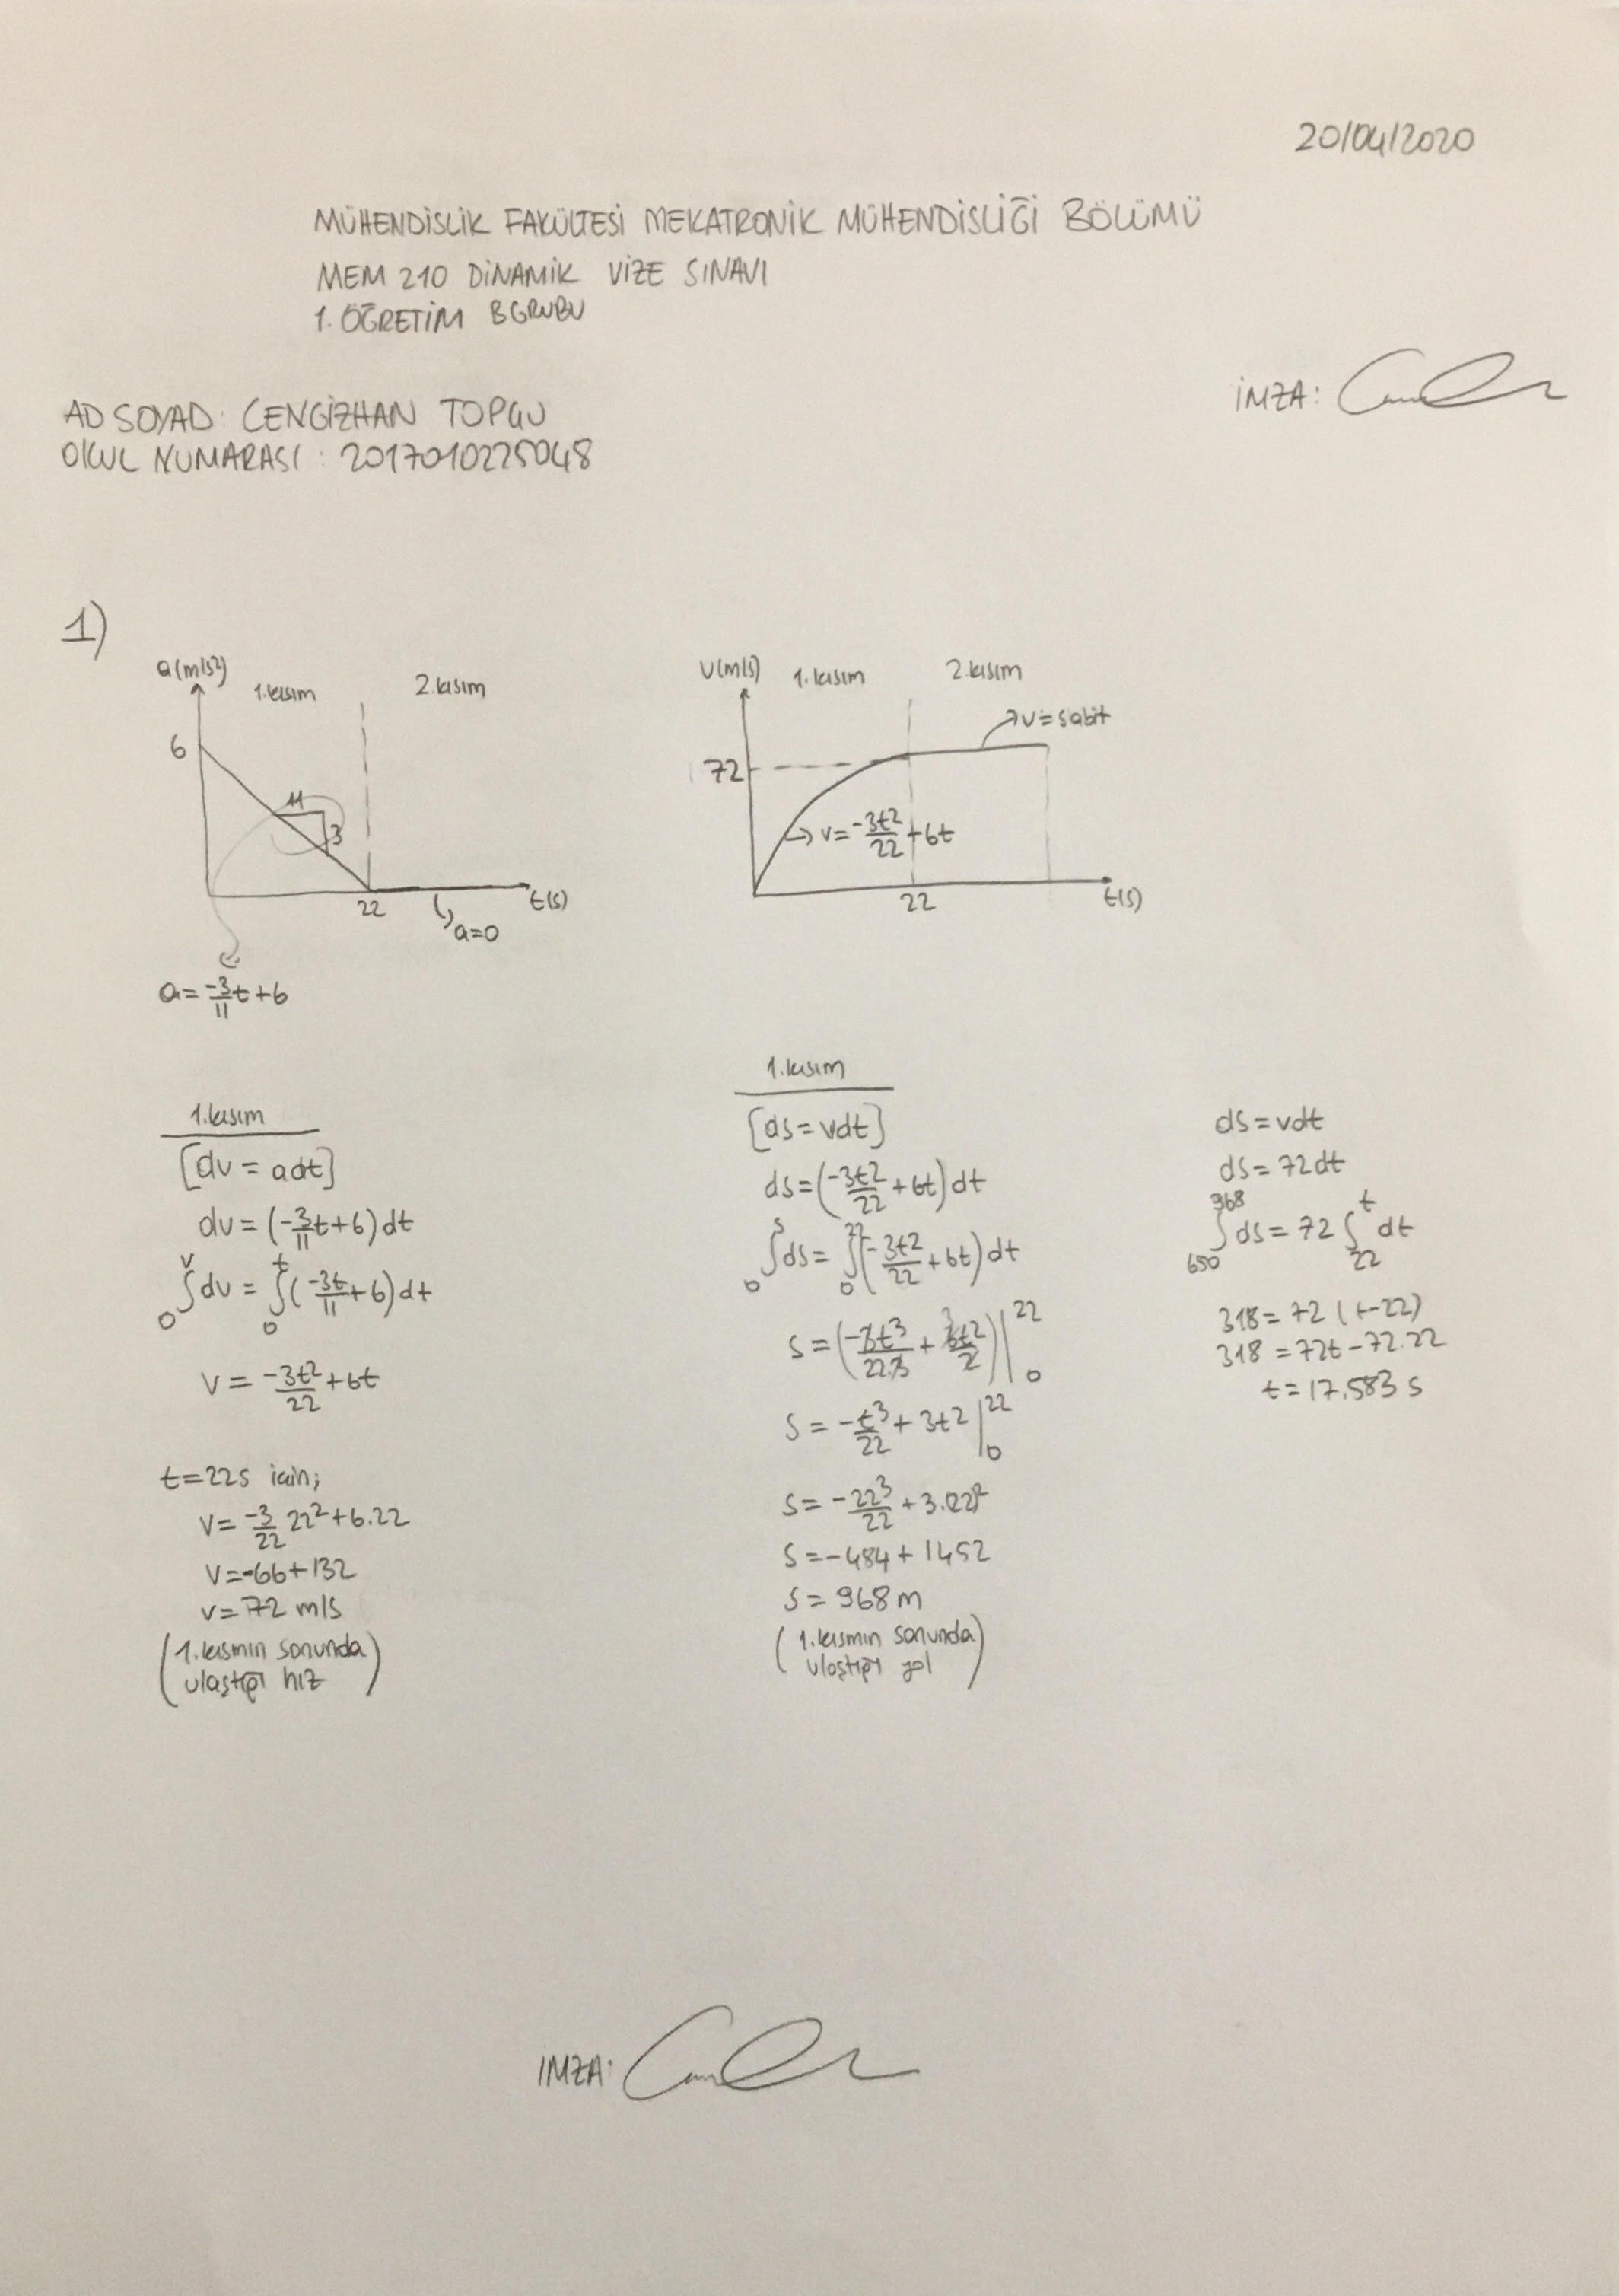 20/04/2020
MÜHENDİSLİK FAKÜLTESİ MEKATRONİK MÜHENDİSLİĞİ BÖLÜMÜ
MEM 210 DİNAMİK VİZE SINAVI
1. ÖĞRETİM B GRUBU
İMZA:
AD SOYAD: CENGİZHAN TOPÇU
OKUL NUMARASI: 2017010225048
1)
a(m/s²)
1.kısım
2.kısım
6
11
3
22
t(s)
a=0
a=-3/11t+6
V(m/s)
1.kısım
2.kısım
v=sabit
72
v=-3t²/22+6t
22
t(s)
1.kısım
[dv=adt]
dv=(-3/11t+6)dt
0∫v dv=0∫t(-3t/11+6)dt
v=-3t²/22+6t
t=22s için;
v=-3/22 22²+6.22
v=-66+132
v=72 m/s
(1.kısmın sonunda
ulaştığı hız)
1.kısım
[ds=vdt]
ds=(-3t²/22+6t)dt
0∫s ds=0∫22(-3t²/22+6t)dt
s=(-3t³/22.3+6t²/2)|22 0
s=-t³/22+3t²|22 0
s=-22³/22+3.22²
s=-484+1452
s=968m
(1.kısmın sonunda
ulaştığı yol)
ds=vdt
ds=72dt
650∫968 ds=72 22∫t dt
318=72(t-22)
318=72t-72.22
t=17.583 s
IMZA: